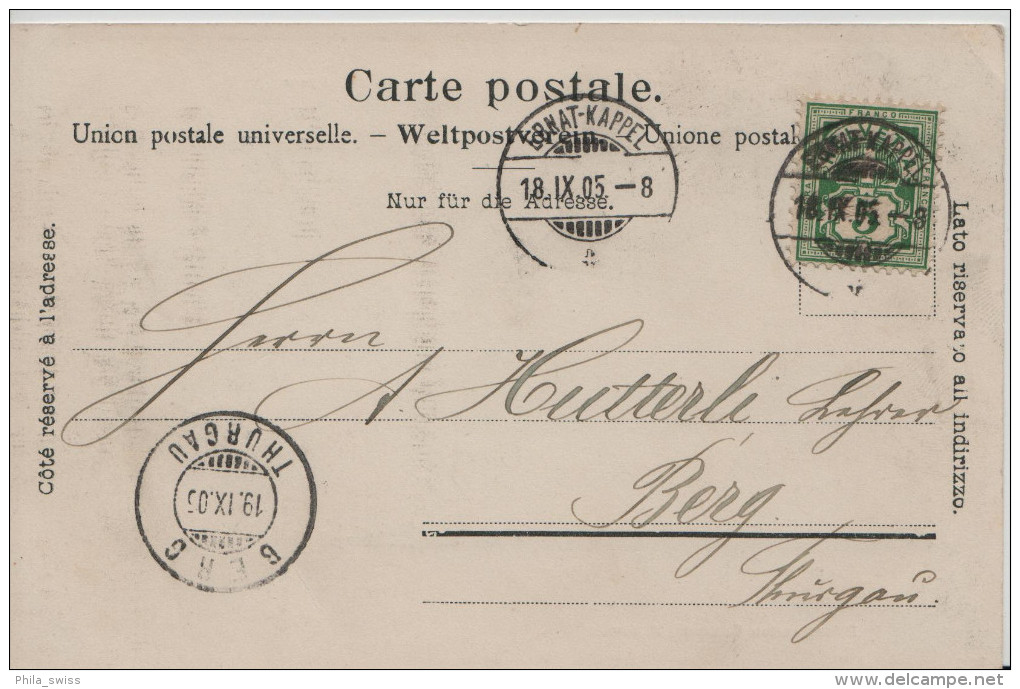 Carte postale.
Union postale universelle. – Weltpostverein. Unione postal
Nur für die Adresse.
EBNAT-KAPPEL
18.IX.05.–8
EBNAT-KAPPEL
18.IX.05.–8
FRANCO
5
Côté réservé à l'adresse.
Lato riservato all indirizzo.
Herrn
A. Hutterli Lehrer
Berg.
Thurgau.
THURGAU
19.IX.05
BERG
Phila_swiss
delcampe.net